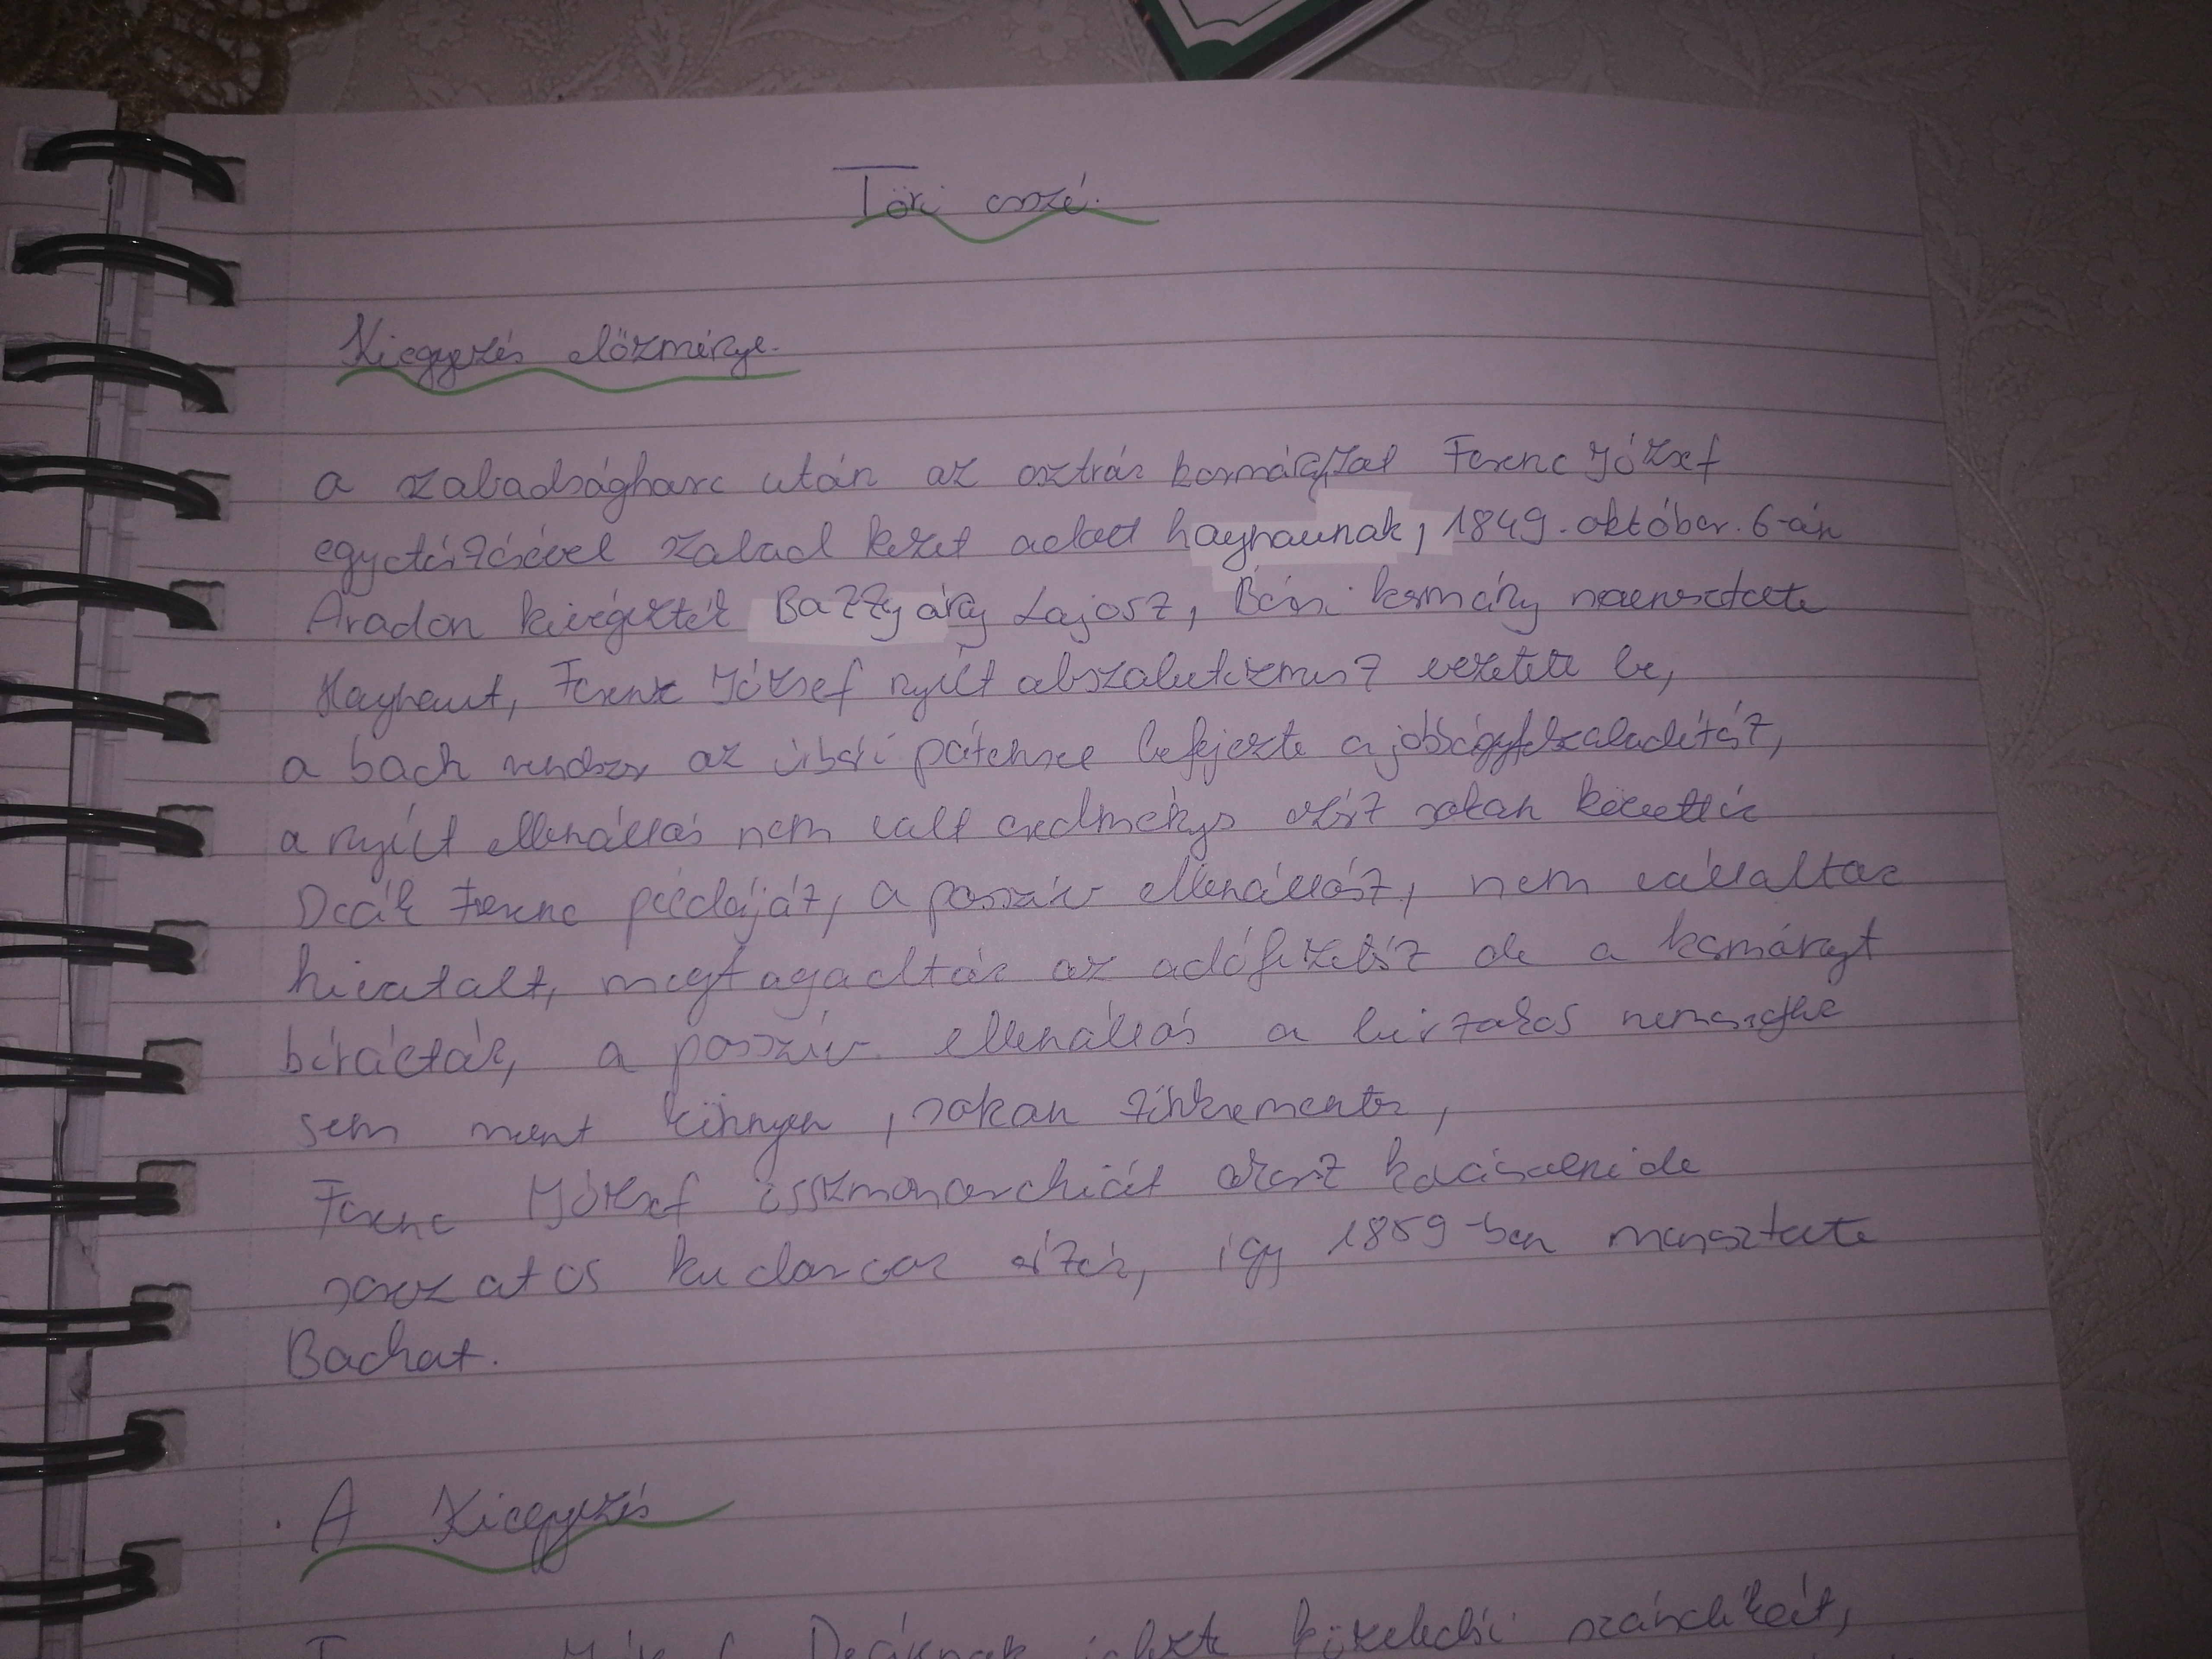 Töri esszé.
Kiegyezés előzménye.
a szabadságharc után az osztrák kormányzat Ferenc József
egyetértésével szabad kezet adott haynaunak, 1849. október. 6-án
Aradon kivégezték Batthyány Lajost, Bécsi kormány menesztette
Haynaut, Ferenc József nyílt abszolutizmust vezetett be,
a bach rendszer az úrbéri pátenssel befejezte a jobbágyfelszabadítást,
a nyílt ellenállás nem volt eredményes ezért sokan követték
Deák Ferenc példáját, a passzív ellenállást, nem vállaltak
hivatalt, megtagadták az adófizetést de a kormányt
bírálták, a passzív ellenállás a birtokos nemességnek
sem ment könnyen, sokan tönkrementek,
Ferenc József összmonarchiát akart kovácsolni de
sorozatos kudarcok érték, így 1859-ben menesztette
Bachot.
A Kiegyezés
Deáknak jelezte közeledési szándékát,